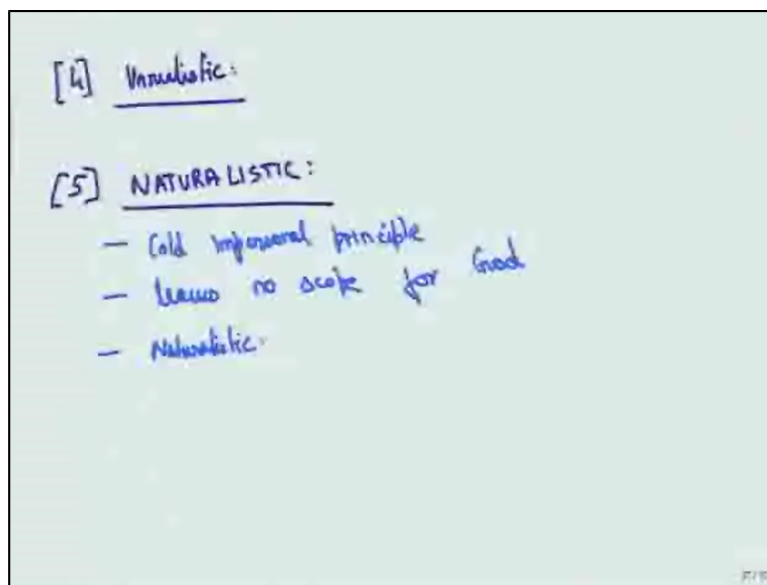 [4] Unrealistic:
[5] NATURALISTIC:
— Cold impersonal principle
— leaves no scope for God
— Naturalistic.